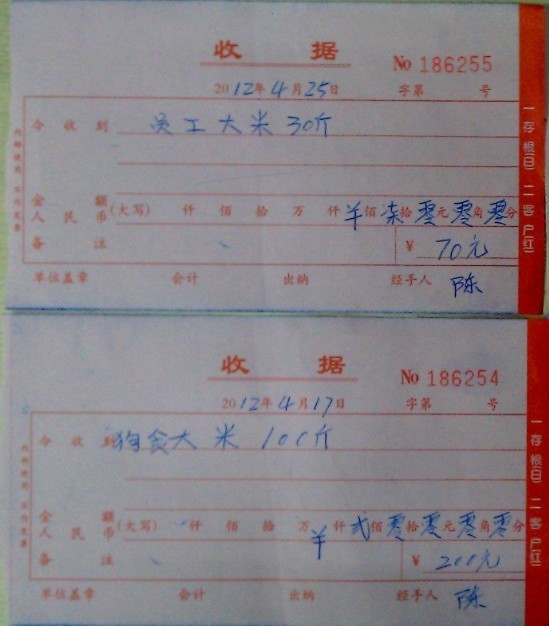 收 据
No 186255
2012年4月25日 字第 号
今收到 员工大米30斤
金额
人民币(大写) 仟 佰 拾 万 仟 ¥佰 柒拾零元零角零分
备注 ¥ 70元
单位盖章 会计 出纳 经手人 陈
一存根(白) 二客户(红)
收 据
No 186254
2012年4月17日 字第 号
今收到 狗食大米 100斤
金额
人民币(大写) 仟 佰 拾 万 ¥仟 贰佰零拾零元零角零分
备注 ¥ 200元
单位盖章 会计 出纳 经手人 陈
一存根(白) 二客户(红)